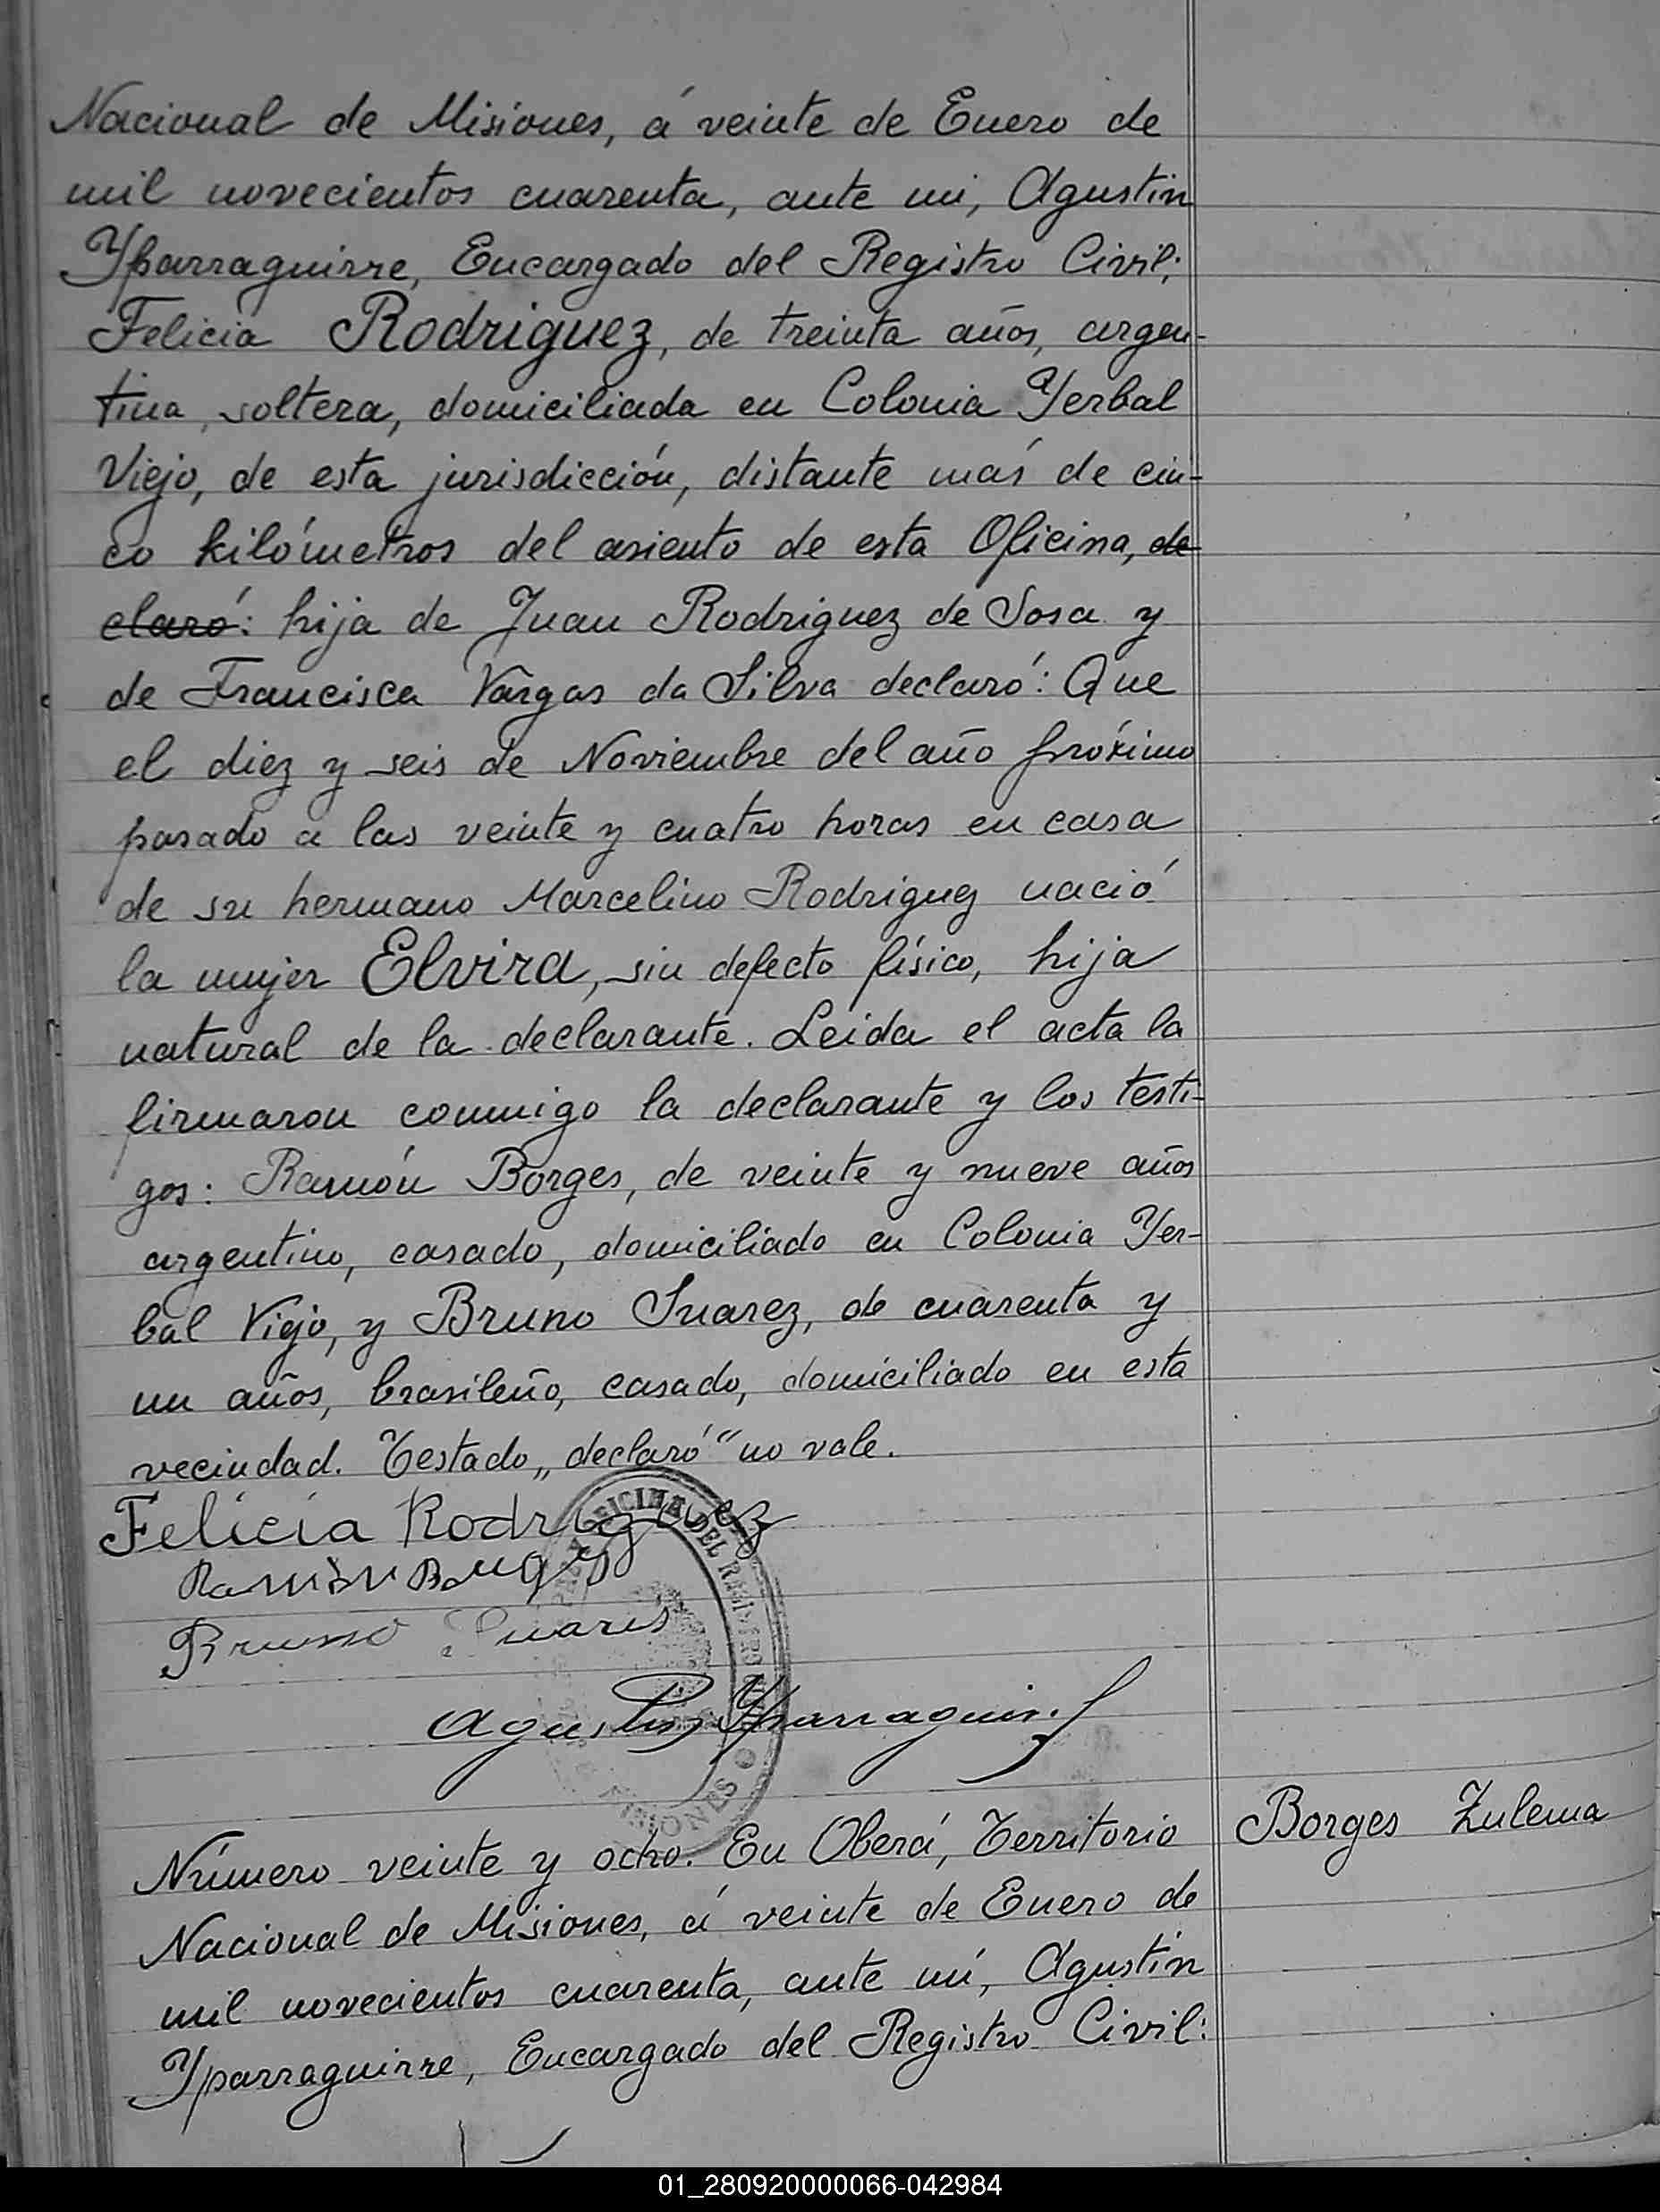 Nacional de Misiones, á veinte de Enero de
mil novecientos cuarenta, ante mi, Agustin
Yparraguirre, Encargado del Registro Civil;
Felicia Rodriguez, de treinta años, argen-
tina, soltera, domiciliada en Colonia Yerbal
Viejo, de esta jurisdicción, distante más de cin-
co kilómetros del asiento de esta Oficina, de
claró: hija de Juan Rodriguez de Sosa y
de Francisca Vargas da Silva declaró: Que
el diez y seis de Noviembre del año próximo
pasado a las veinte y cuatro horas en casa
de su hermano Marcelino Rodriguez nació
la mujer Elvira, sin defecto físico, hija
natural de la declarante. Leida el acta la
firmaron conmigo la declarante y los testi-
gos: Ramón Borges, de veinte y nueve años
argentino, casado, domiciliado en Colonia Yer-
bal Viejo, y Bruno Suarez, de cuarenta y
un años, brasileño, casado, domiciliado en esta
vecindad. Testado „declaró” no vale.
Felicia Rodriguez
Ramón Borges
Bruno Suares
OFICINA DEL REGISTRO
MISIONES
Agustin Yparraguirre
Número veinte y ocho. En Oberá, Territorio
Borges Zulema
Nacional de Misiones, á veinte de Enero de
mil novecientos cuarenta, ante mí, Agustin
Yparraguirre, Encargado del Registro Civil:
01_280920000066-042984